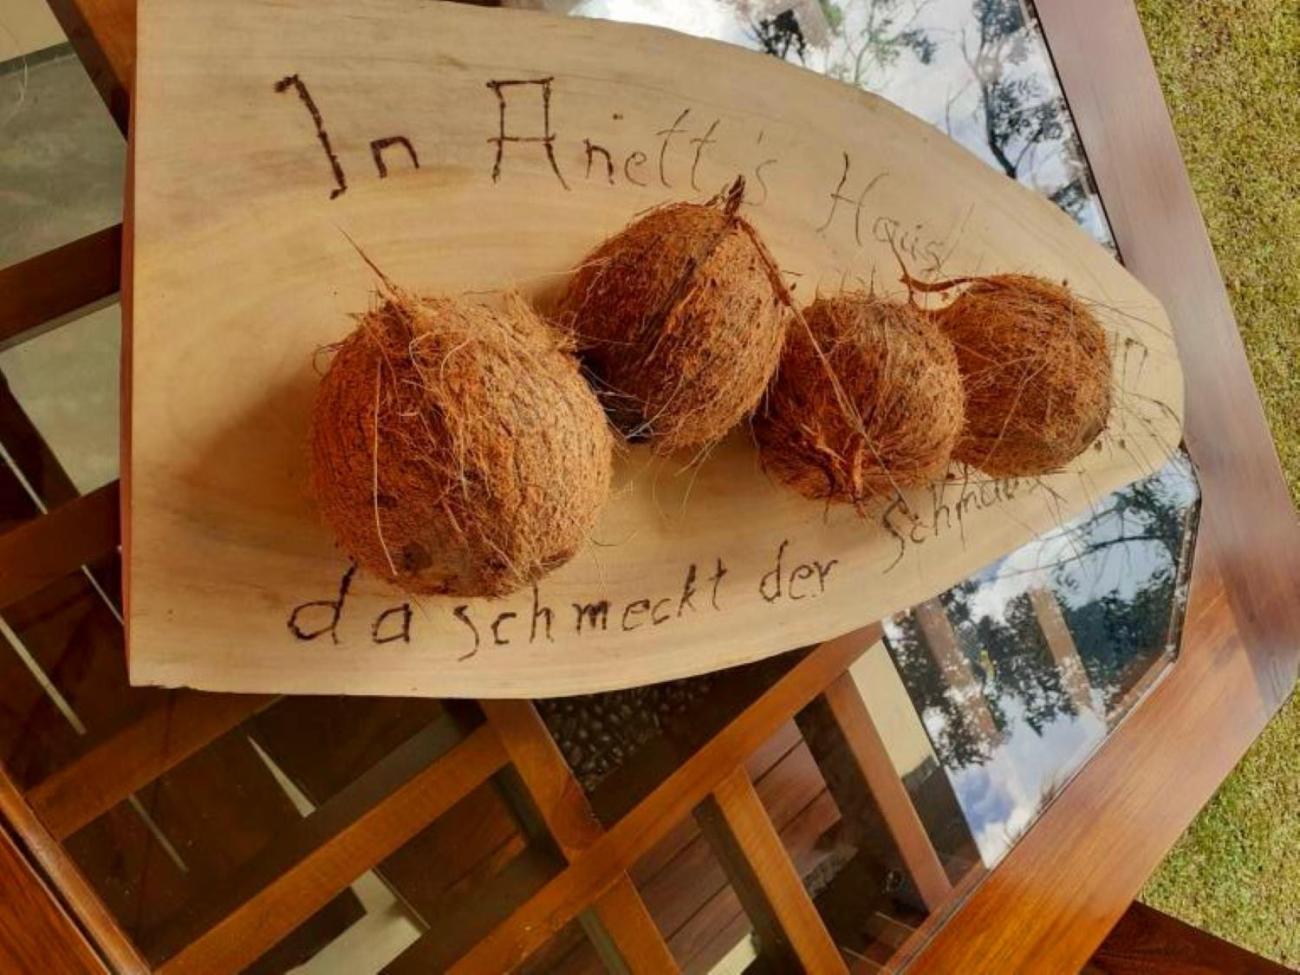 In Anett's Haus
da schmeckt der Schmaus